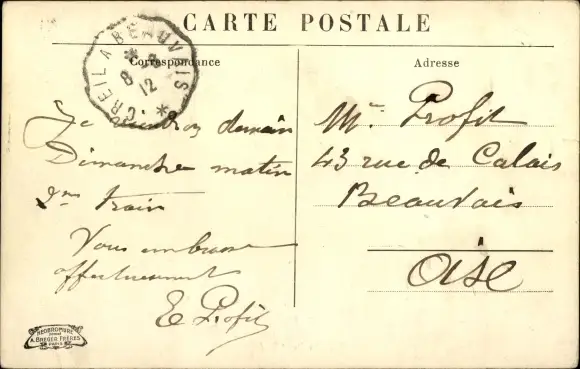 CARTE POSTALE
Correspondance
Adresse
CREIL A BEAUVAIS
8
12
Je demain
Dimanche matin
2me train
Vous embrasse
affectueusement
E Profit
Mr Profit
43 rue de Calais
Beauvais
Oise
A. BREGER FRÈRES
PARIS